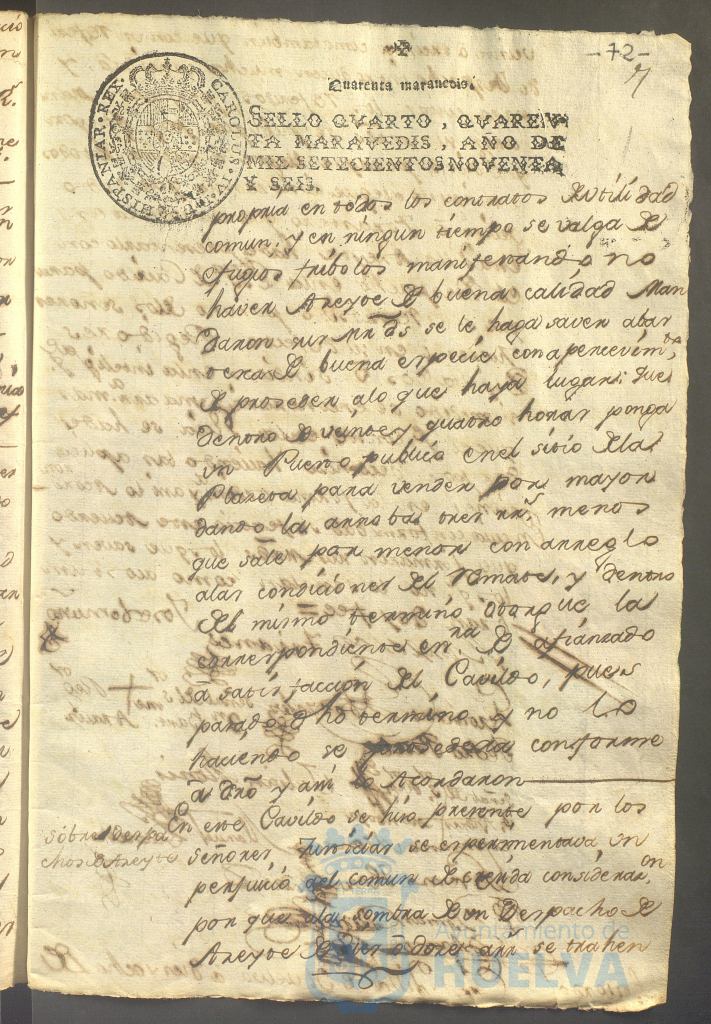 -72-
Quarenta maravedis.
SELLO QVARTO, QVAREN
TA MARAVEDIS, AÑO DE
MIL SETECIENTOS NOVENTA
Y SEIS.
CAROLUS IV HISPANIAR REX
propria en todos los contratos de utilidad
comun, y en ningun tiempo se valga de
efugios fribolos manifestando no
haver Azeyte de buena calidad Man
daron sus mrds se le haga saver abas
tezca de buena especie con apercevimto
de proceder alo que haya lugar: que
dentro de veinte y quatro horas ponga
un Puesto publico en el sitio dela
Plazeta para vender por mayor
dando la arroba tres rrs menos
que sale por menor con arreglo
alas condiciones del Remate, y dentro
del mismo termino otorgue la
correspondiente de afianzado
a satisfaccion del Cavildo, pues
pasado dho termino y no lo
haciendo se procedera conforme
a dro y asi lo Acordaron
En este Cavildo se hizo presente por los
señores Justicias se esperimentava un
perjuicio del comun de crecida consideraon
por que ala sombra de un Despacho de
Azeyte de se trahen
sobre Despa
chos de Azeyte
Ayuntamiento de
HUELVA